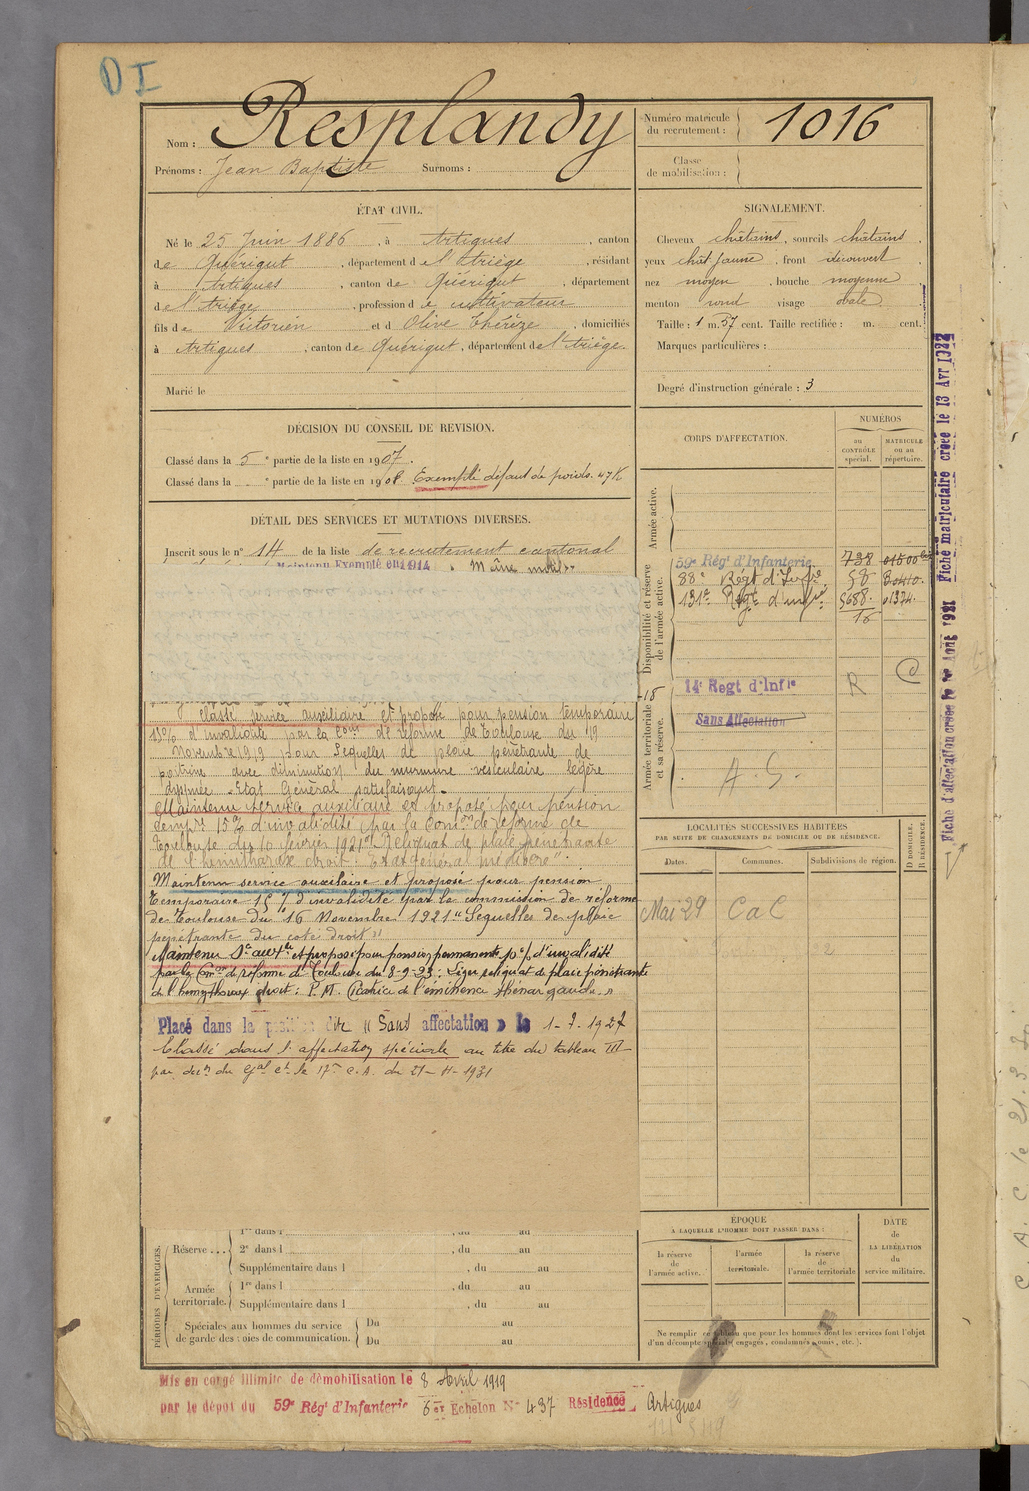 D I
Nom : Resplandy
Prénoms : Jean Baptiste Surnoms :
Numéro matricule du recrutement : 1016
Classe de mobilisation :
ÉTAT CIVIL.
Né le 25 Juin 1886, à Artigues, canton
de Quérigut, département de l'Ariège, résidant
à Artigues, canton de Quérigut, département
de l'Ariège, profession de cultivateur
fils de Victorien et d Olive Thérèze, domiciliés
à Artigues, canton de Quérigut, département de l'Ariège.
Marié le
SIGNALEMENT.
Cheveux châtains, sourcils châtains,
yeux chât jaune, front découvert
nez moyen, bouche moyenne
menton rond visage ovale
Taille : 1 m. 57 cent. Taille rectifiée : m. cent.
Marques particulières :
Degré d'instruction générale : 3
DÉCISION DU CONSEIL DE REVISION.
Classé dans la 5e partie de la liste en 1907.
Classé dans la e partie de la liste en 1908. Exempté défaut de poids. 47 K
DÉTAIL DES SERVICES ET MUTATIONS DIVERSES.
Inscrit sous le n° 14 de la liste de recrutement cantonal
Maintenu Exempté en 1914 Même motif
classé service auxiliaire et proposé pour pension temporaire
15% d'invalidité par la Com° de réforme de Toulouse du 19
Novembre 1919 pour Séquelles de plaie pénétrante de
poitrine avec diminution du murmure vésiculaire légère
dyspnée. Etat Général satisfaisant.
Maintenu service auxiliaire et proposé pour pension
temp.re 15% d'invalidité par la Com.on de réforme de
Toulouse du 10 février 1921 "Reliquat de plaie pénétrante
de l'hémithorax droit. Etat général médiocre".
Maintenu service auxiliaire et proposé pour pension
Temporaire 15% d'invalidité par la commission de réforme
de Toulouse du 16 Novembre 1921 "Séquelles de plaie
pénétrante du coté droit"
Maintenu Sce auxre et proposé pour pension permanente
par la Con de réforme de Toulouse du 8-9-23 : Léger reliquat de plaie pénétrante
de l'hémithorax droit : P.M. Cicatrice de l'éminence thénar gauche. »
Placé dans la position dite « Sans affectation » le 1-7-1927
Classé dans l'affectation spéciale au titre du tableau III
par déc.n du Gal Ct le 17e C.A. du 21-4-1931
CORPS D'AFFECTATION.
NUMÉROS
au CONTRÔLE spécial.
MATRICULE ou au répertoire.
Armée active.
Disponibilité et réserve de l'armée active.
59e Régt d'Infanterie 738
88e Régt d'Infie 58
131e Régt d'infie 5688. 01374.
16
14e Regt d'Infie R
Sans Affectation
A. S.
Armée territoriale et sa réserve.
LOCALITÉS SUCCESSIVES HABITÉES
PAR SUITE DE CHANGEMENTS DE DOMICILE OU DE RÉSIDENCE.
Dates. Communes. Subdivisions de région.
D DOMICILE. R RÉSIDENCE.
Mai 29 C a C
ÉPOQUE
À LAQUELLE L'HOMME DOIT PASSER DANS :
la réserve de l'armée active.
l'armée territoriale.
la réserve de l'armée territoriale
DATE de LA LIBÉRATION du service militaire.
Ne remplir ce tableau que pour les hommes dont les services font l'objet
d'un décompte spécial (engagés, condamnés, omis, etc.).
PÉRIODES D'EXERCICES.
1re dans l , du au
Réserve ... 2e dans l , du au
Supplémentaire dans l , du au
Armée territoriale. 1re dans l , du au
Supplémentaire dans l , du au
Spéciales aux hommes du service de garde des voies de communication. Du au
Du au
Mis en congé illimité de démobilisation le 8 Avril 1919
par le dépôt du 59e Régt d'Infanterie 6er Echelon N° 437 Résidence Artigues
Fiche matriculaire créée le 13 Avr 1922